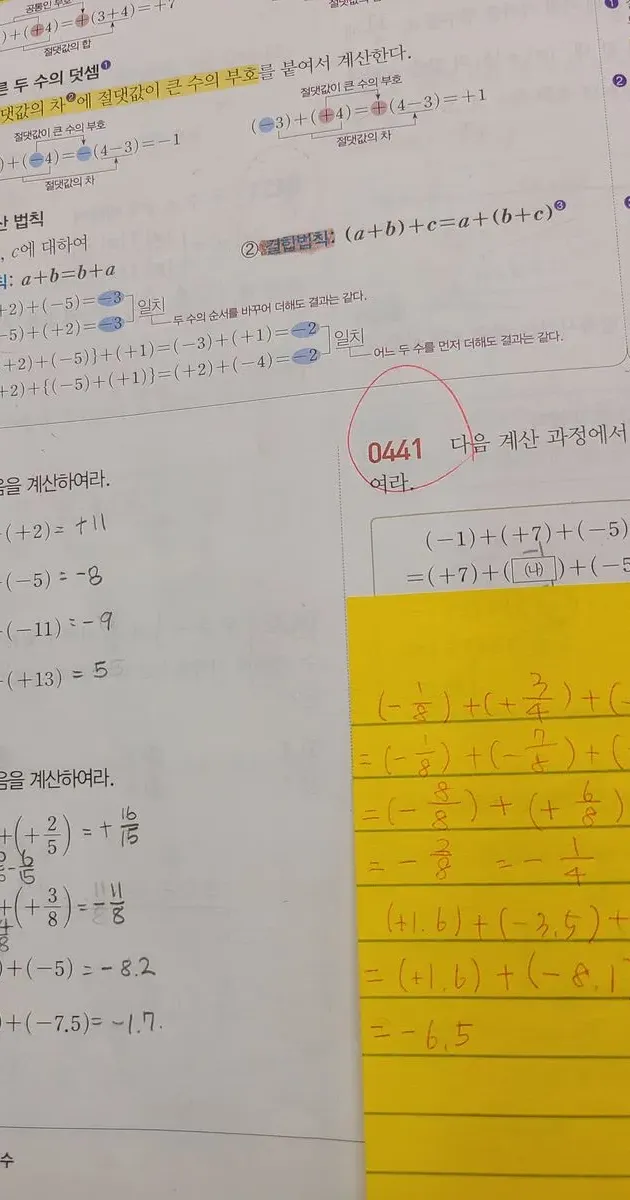 공통인 부호
)+(+4)=+(3+4)=+7
절댓값의 합
른 두 수의 덧셈❶
댓값의 차❷에 절댓값이 큰 수의 부호를 붙여서 계산한다.
절댓값이 큰 수의 부호
)+(−4)=−(4−3)=−1
절댓값의 차
절댓값이 큰 수의 부호
(−3)+(+4)=+(4−3)=+1
절댓값의 차
산 법칙
, c에 대하여
칙: a+b=b+a
② 결합법칙: (a+b)+c=a+(b+c)❸
+2)+(−5)=−3
−5)+(+2)=−3
일치
두 수의 순서를 바꾸어 더해도 결과는 같다.
+2)+(−5)}+(+1)=(−3)+(+1)=−2
+2)+{(−5)+(+1)}=(+2)+(−4)=−2
일치
어느 두 수를 먼저 더해도 결과는 같다.
음을 계산하여라.
(+2)= +11
(−5) = −8
(−11) = −9
(+13) = 5
음을 계산하여라.
+(+2/5) = +16/15
6/15
+(+3/8) = −11/8
)+(−5) = −8.2
)+(−7.5)= −1.7.
수
0441 다음 계산 과정에서
여라.
(−1)+(+7)+(−5)
−1
=(+7)+( (나) )+(−5
(−1/8)+(+3/4)+(−
=(−1/8)+(−7/8)+(
=(−8/8)+(+6/8)
=−2/8 =−1/4
(+1.6)+(−3.5)+
=(+1.6)+(−8.1
=−6.5
❶
❷